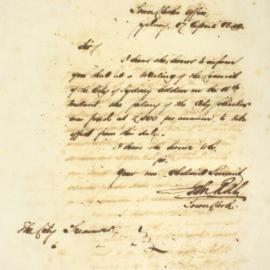 Town Clerk's Office
Sydney 17 April
Sir
I have the honor to inform
you that at a Meeting of the Council
of the City of Sydney holden on the
Instant, the salary of the City
was fixed at £ per annum to take
effect from this date.
I have the honor to be
Sir
Your most Obedient Servant
Town Clerk
The City Treasurer